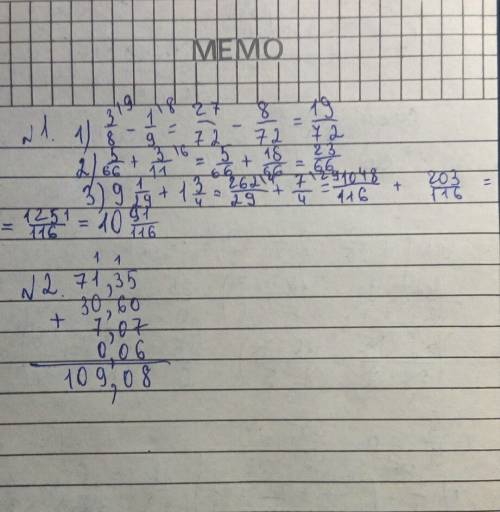 МЕМО
№1. 1) 3/8 \9 - 1/9 \8 = 27/72 - 8/72 = 19/72
2) 5/66 + 3/11 \6 = 5/66 + 18/66 = 23/66
3) 9 1/29 + 1 3/4 = 262/29 \4 + 7/4 \29 = 1048/116 + 203/116 =
= 1251/116 = 10 91/116
1 1
№2. 71,35
30,60
+ 7,07
0,06
109,08